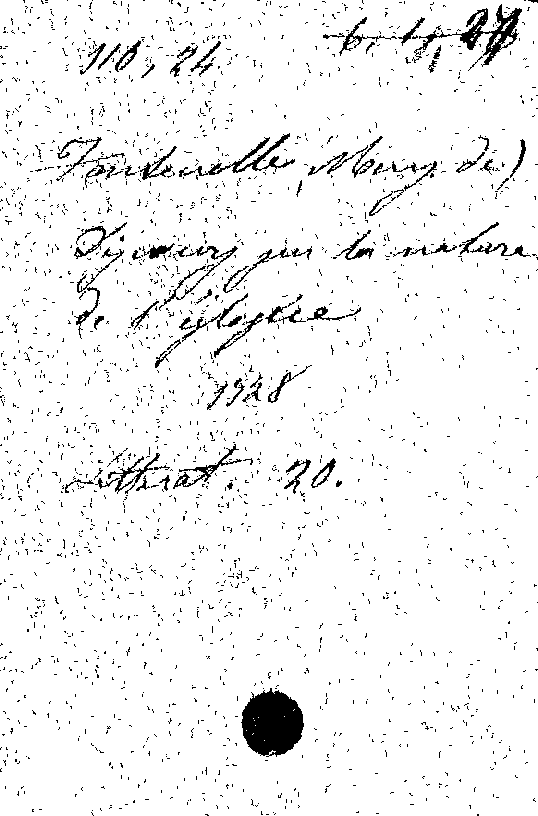 110, 24
6. 4, 27
Fontenelle, de)
sur la nature
de l'églogue
1728
Litterat. 20.